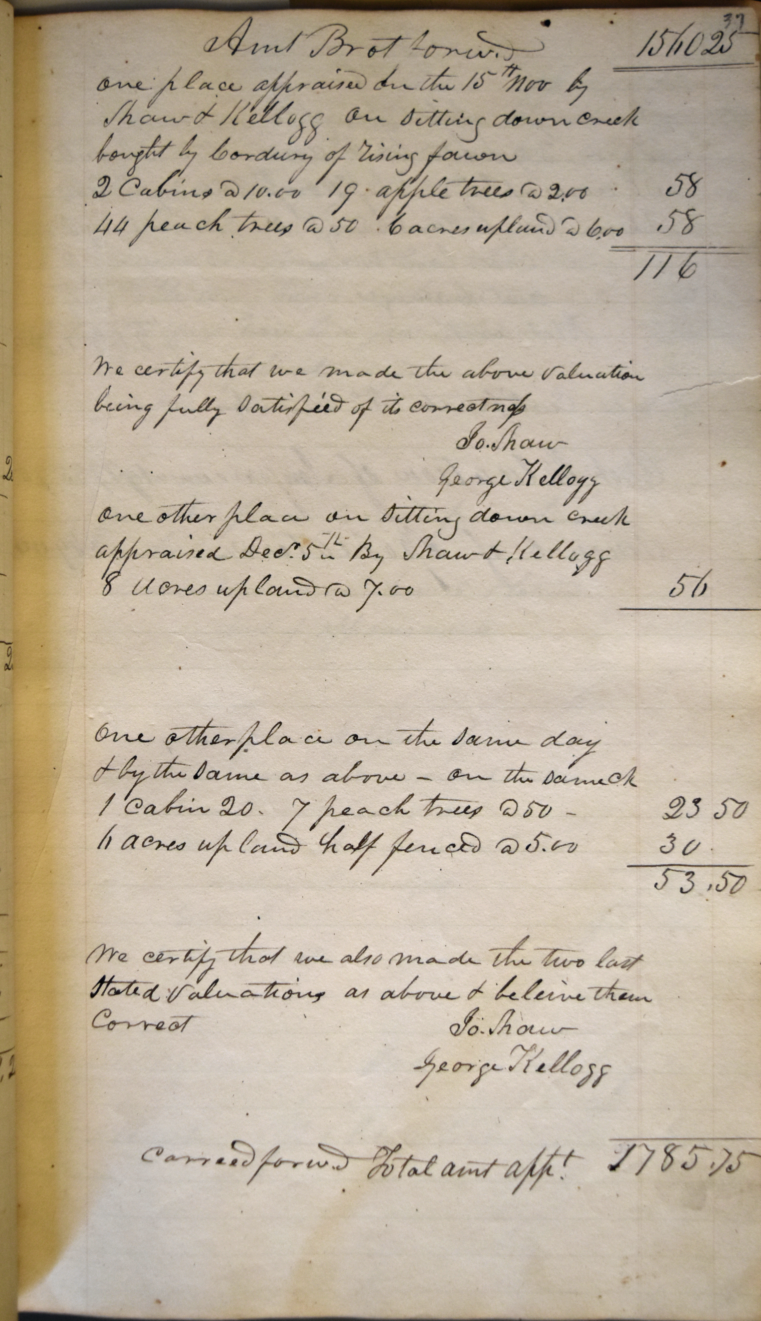 37
Amt Brot forwd 1560 25
one place appraised on the 15th Nov by
Shaw & Kellogg on Sitting down creek
bought by Cordury of Rising fawn
2 Cabins @ 10.00 19. apple trees @ 2.00 58
44 peach trees @ 50 . 6 acres upland @ 6.00 58
116
We certify that we made the above valuation
being fully Satisfied of its correctness
Jo. Shaw
George Kellogg
One other place on Sitting down creek
appraised Decr. 5th By Shaw & Kellogg
8 Acres upland @ 7.00 56
One other place on the Same day
& by the Same as above - on the Same ck
1 Cabin 20. 7 peach trees @ 50 - 23 50
6 acres upland half fenced @ 5.00 30.
53.50
We certify that we also made the two last
Stated Valuations as above & beleive them
Correct Jo. Shaw
George Kellogg
Carreed forwd Total amt appt. 1785.75